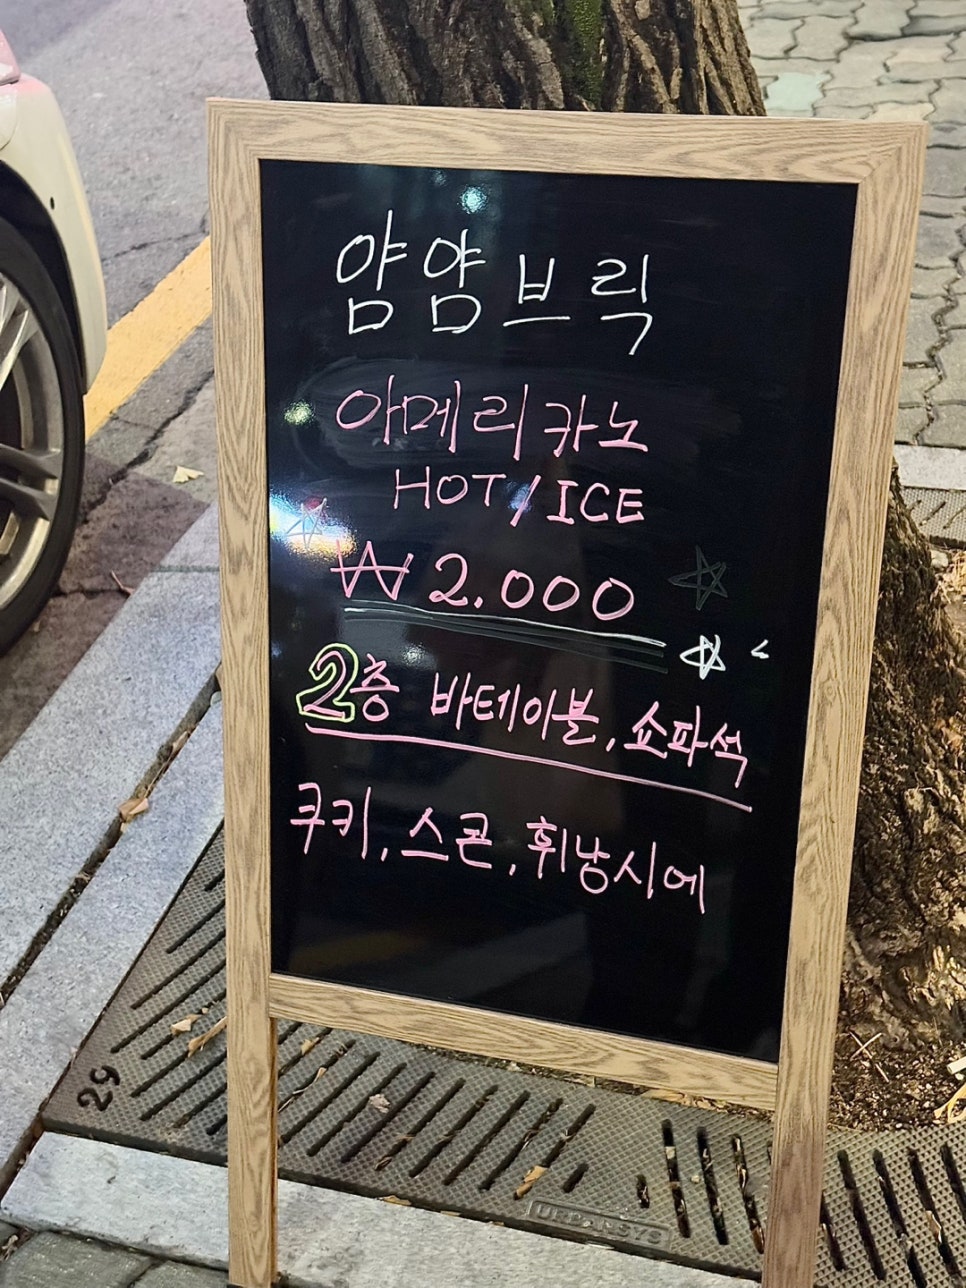 얌얌브릭
아메리카노
HOT / ICE
₩2.000
2층 바테이블, 쇼파석
쿠키, 스콘, 휘낭시에
29